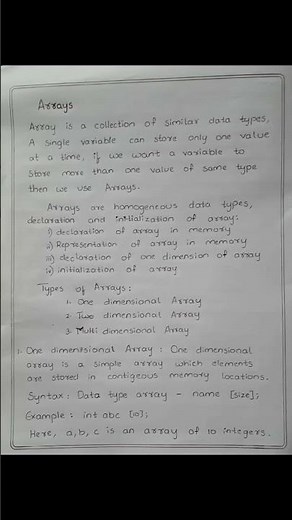 Arrays
Array is a collection of similar data types,
A single variable can store only one value
at a time, if we want a variable to
store more than one value of same type
then we use Arrays.
Arrays are homogeneous data types,
declaration and initialization of array:
i) declaration of array in memory
ii) Representation of array in memory
iii) declaration of one dimension of array
iv) initialization of array
Types of Arrays:
1. One dimensional Array
2. Two dimensional Array
3. Multi dimensional Array
1. One dimensional Array : One dimensional
array is a simple array which elements
are stored in contigeous memory locations.
Syntax : Data type array - name [size];
Example : int abc [10];
Here, a,b,c is an array of 10 integers.